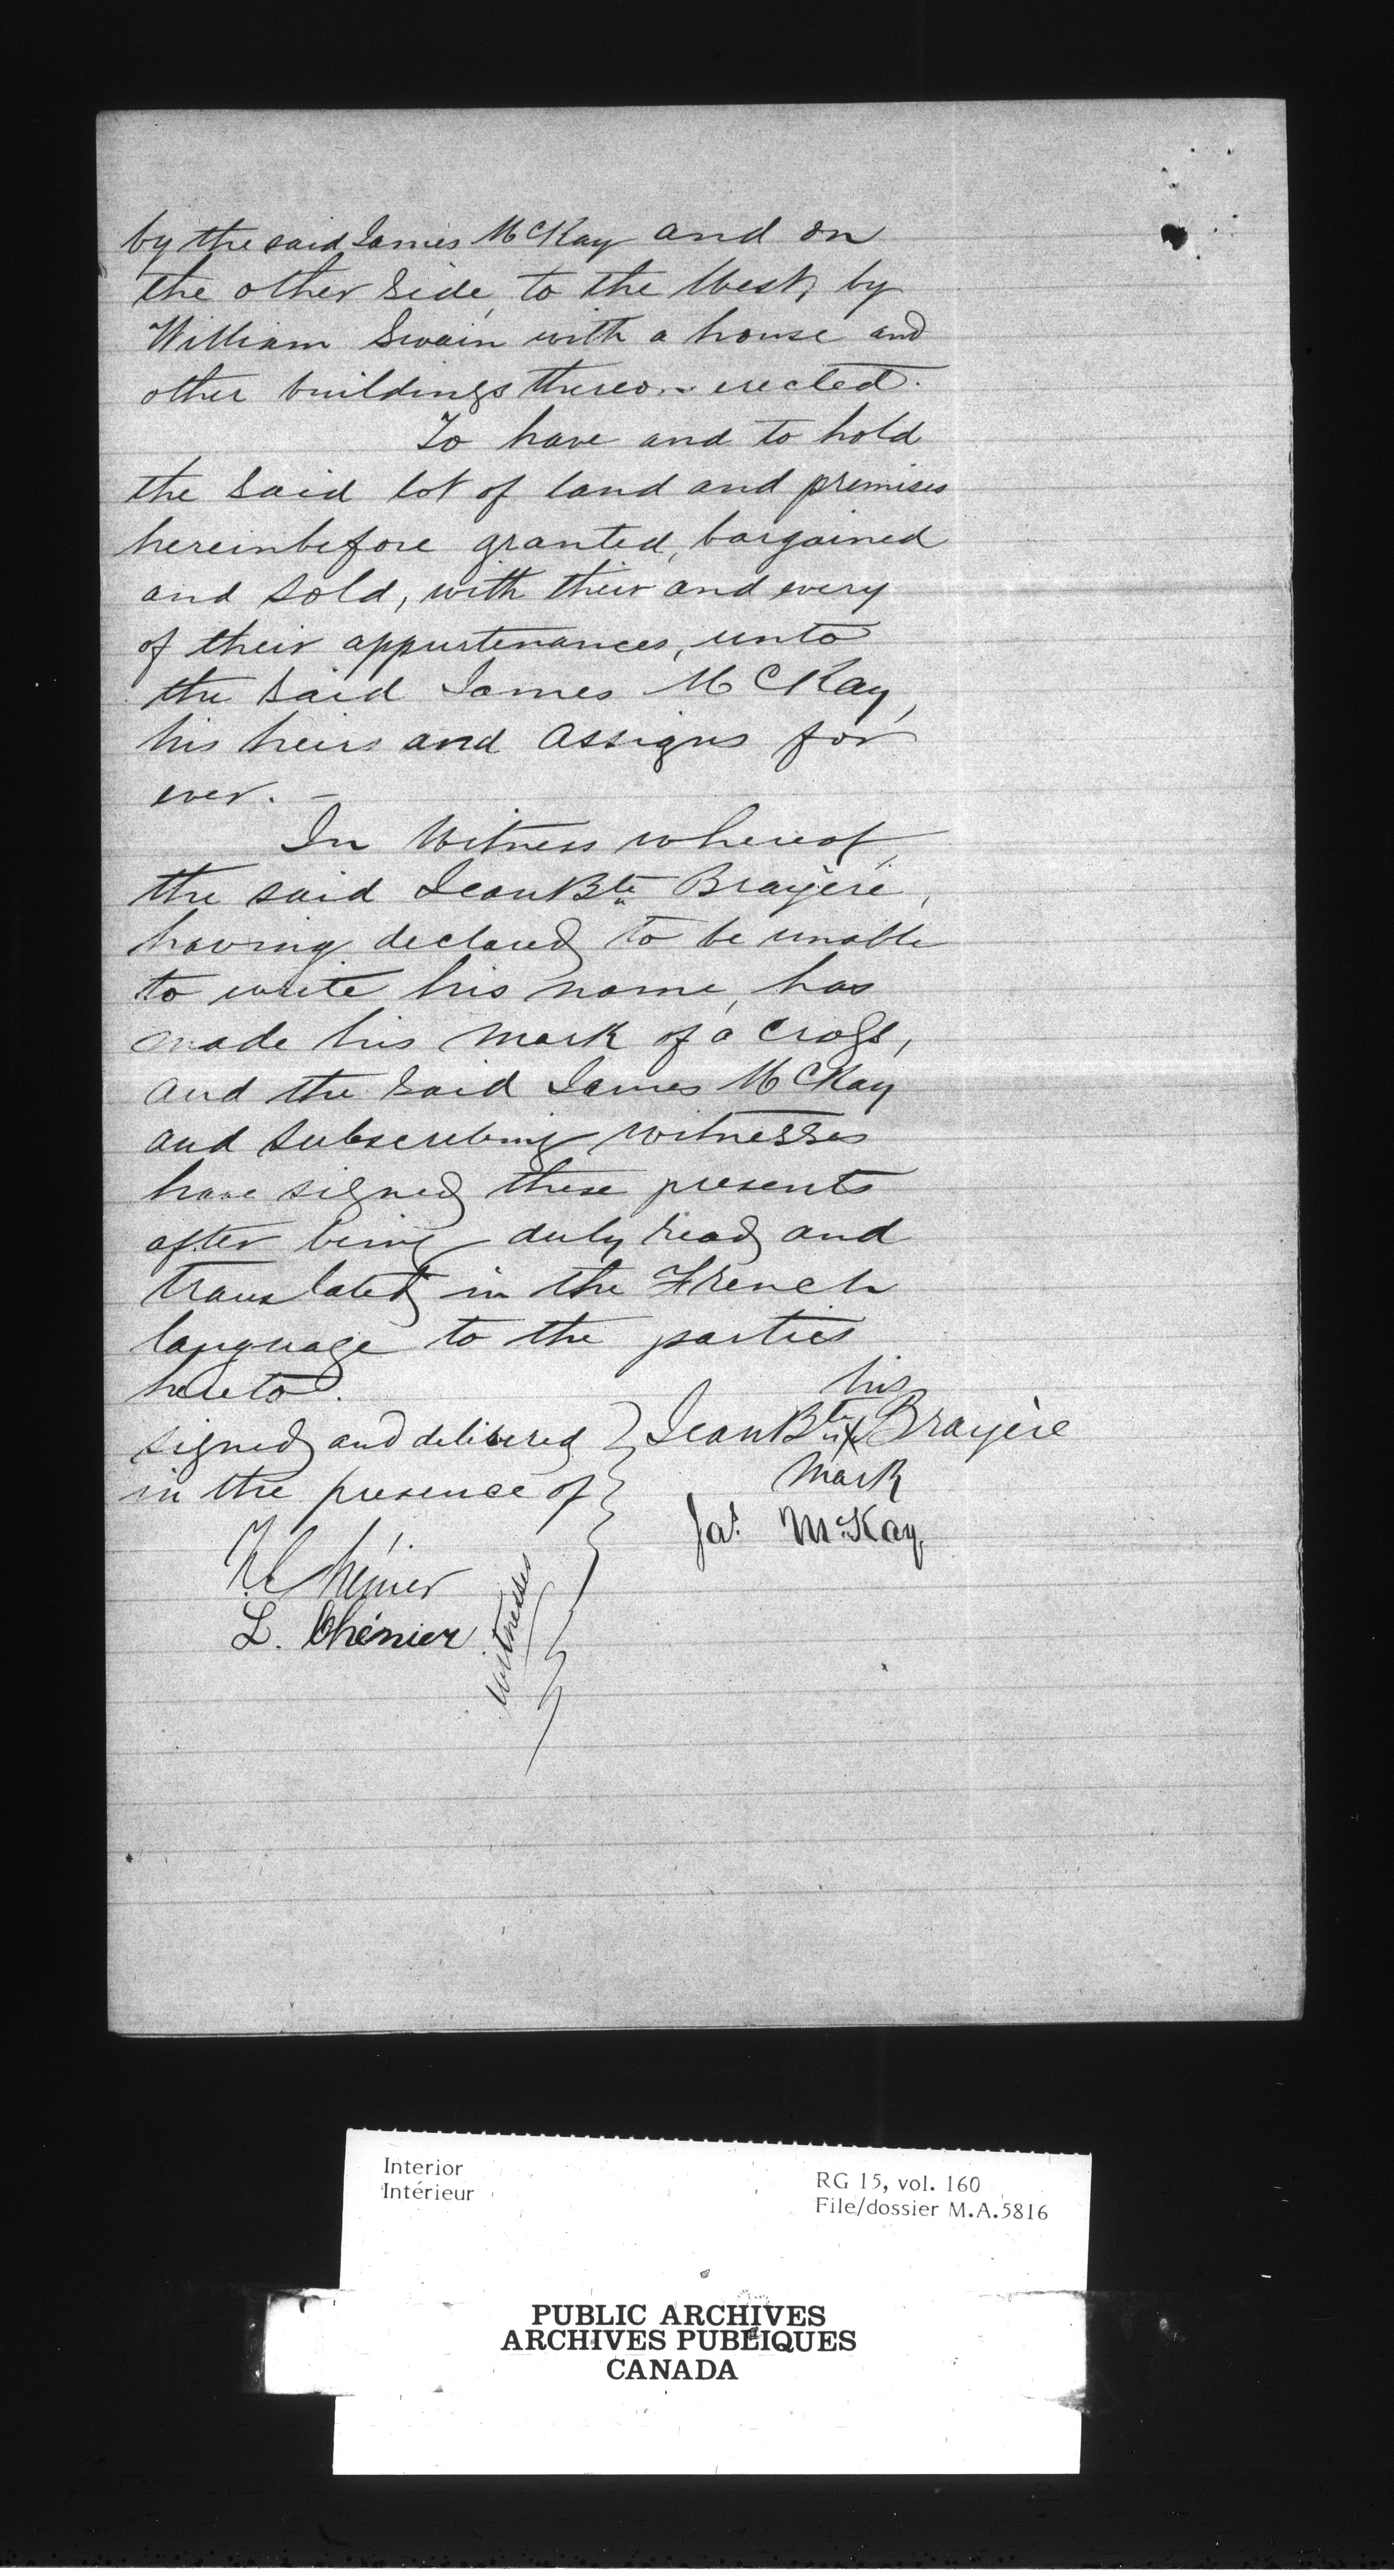 by the said James McKay and on
the other side, to the West, by
William Swain with a house and
other buildings thereon erected.
To have and to hold
the said lot of land and premises
hereinbefore granted, bargained
and sold, with their and every
of their appurtenances, unto
the said James McKay,
his heirs and assigns for
ever. –
In Witness whereof,
the said Jean Bte Brayère,
having declared to be unable
to write his name, has
made his mark of a cross,
and the said James McKay
and subscribing witnesses
have signed these presents
after being duly read and
translated in the French
language to the parties
hereto.
signed and delivered
in the presence of
his
Jean Bte X Brayère
mark
Jas. McKay
Chénier
L. Chénier
witnesses
Interior
Intérieur
RG 15, vol. 160
File/dossier M.A.5816
PUBLIC ARCHIVES
ARCHIVES PUBLIQUES
CANADA